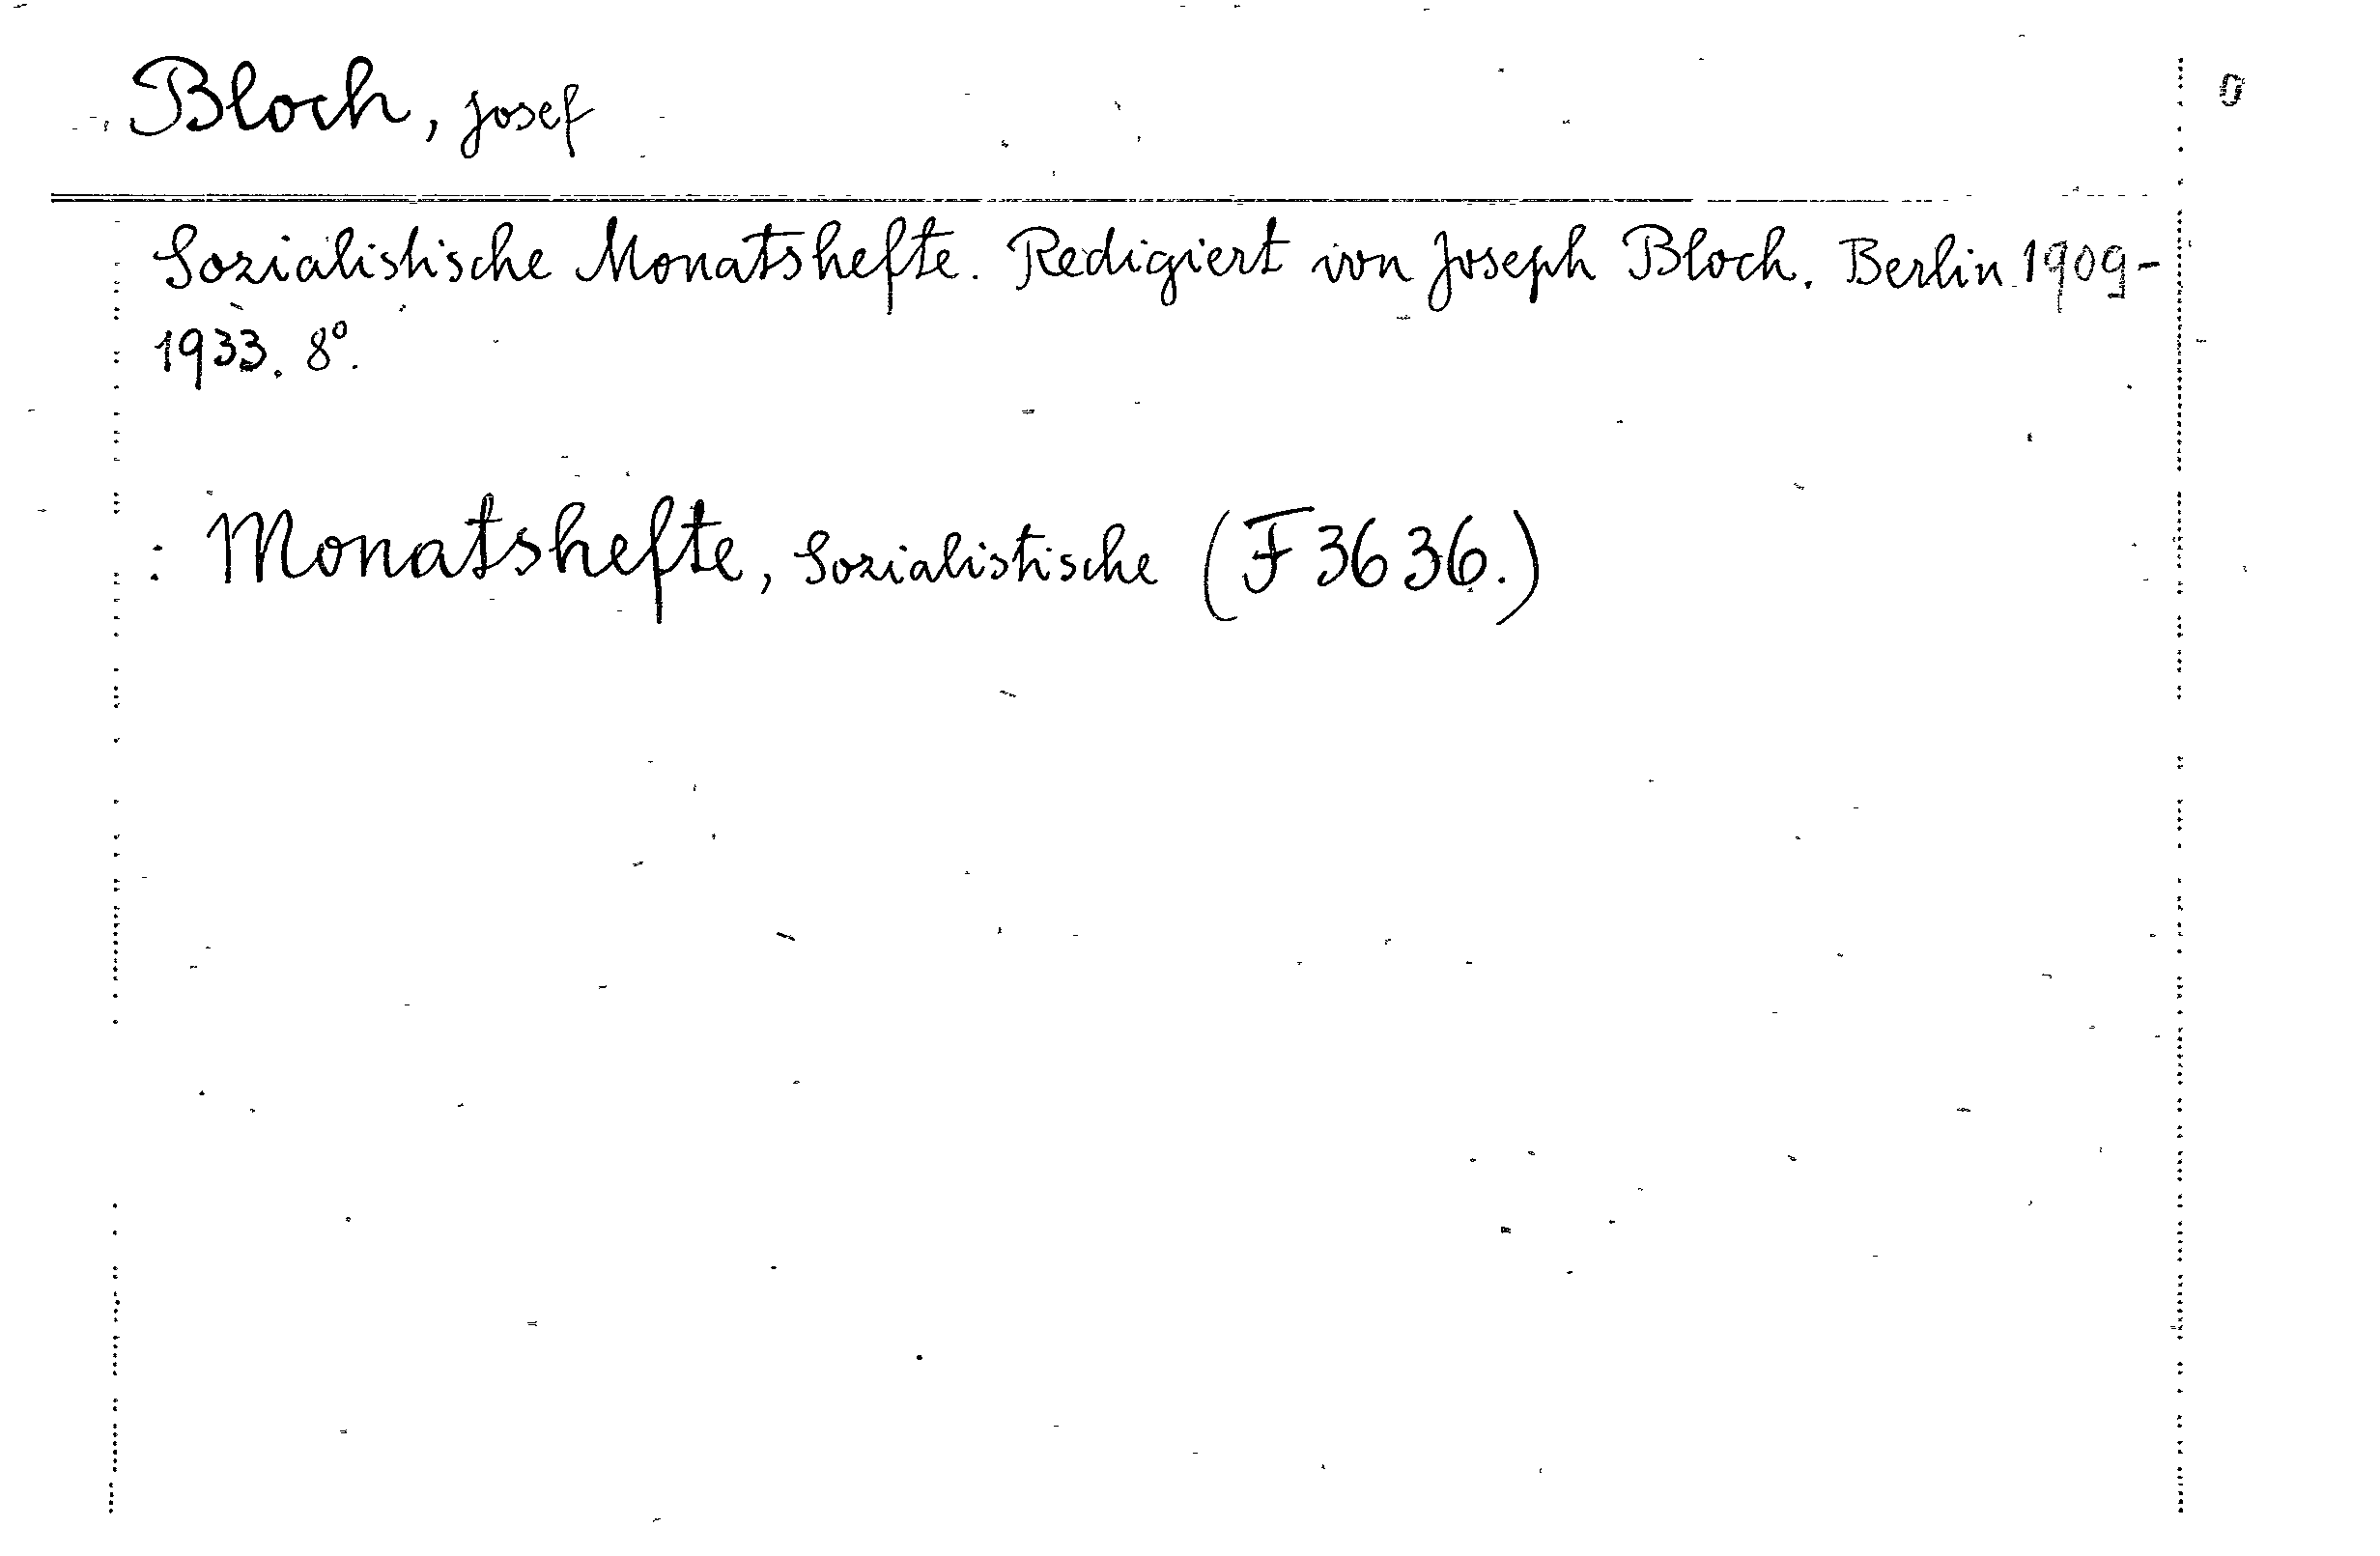 Bloch, Josef
Sozialistische Monatshefte. Redigiert von Joseph Bloch. Berlin 1909-
1933. 8°.
: Monatshefte, Sozialistische (F 3636.)